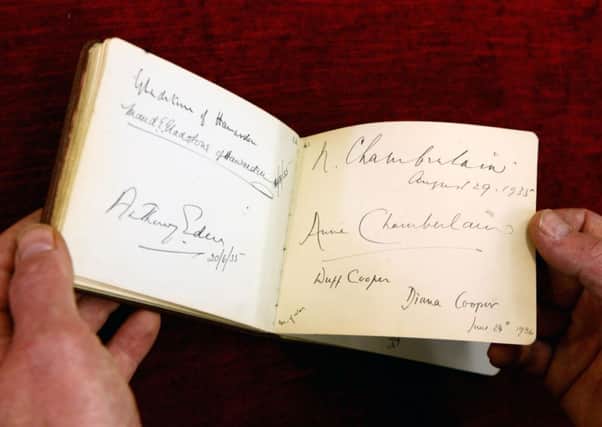 Gladstone of Hawarden
Maud E Gladstone of Hawarden
Anthony Eden
20/6/35
N. Chamberlain
August 29. 1935
Anne Chamberlain
Duff Cooper
Diana Cooper
June 24th 1936